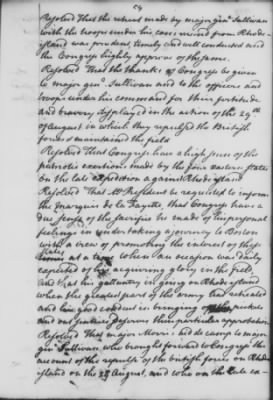 54
Resolved That the retreat made by major genl. Sullivan
with the troops under his command from Rhode-
island was prudent, timely and well conducted and
the Congress highly approve of the same.
Resolved That the thanks of Congress be given
to major genl. Sullivan and to the officers and
troops under his command for their fortitude
and bravery displayed in the action of the 29th
of august in which they repulsed the British
forces & maintained the field
Resolved That Congress have a high sense of the
patriotic exertions made by the four eastern states
on the late expedition against Rhode island
Resolved That Mr. President be requested to inform
the marquis de la Fayette, that Congress have a
due sense of the sacrifice he made of his personal
feelings in undertaking a journey to Boston
with a view of promoting the interest of these
states at a time when an occasion was daily
expected of his acquiring glory in the field
and that his gallantry in going on Rhode island
when the greatest part of the army had retreated
and his good conduct in bringing off the pickets
and out sentries deserves their particular approbation
Resolved That major Morris aid de camp to major
genl. Sullivan, who brought forward to Congress the
account of the repulse of the british forces on Rhode
island on the 29 august, and who on the late ex-